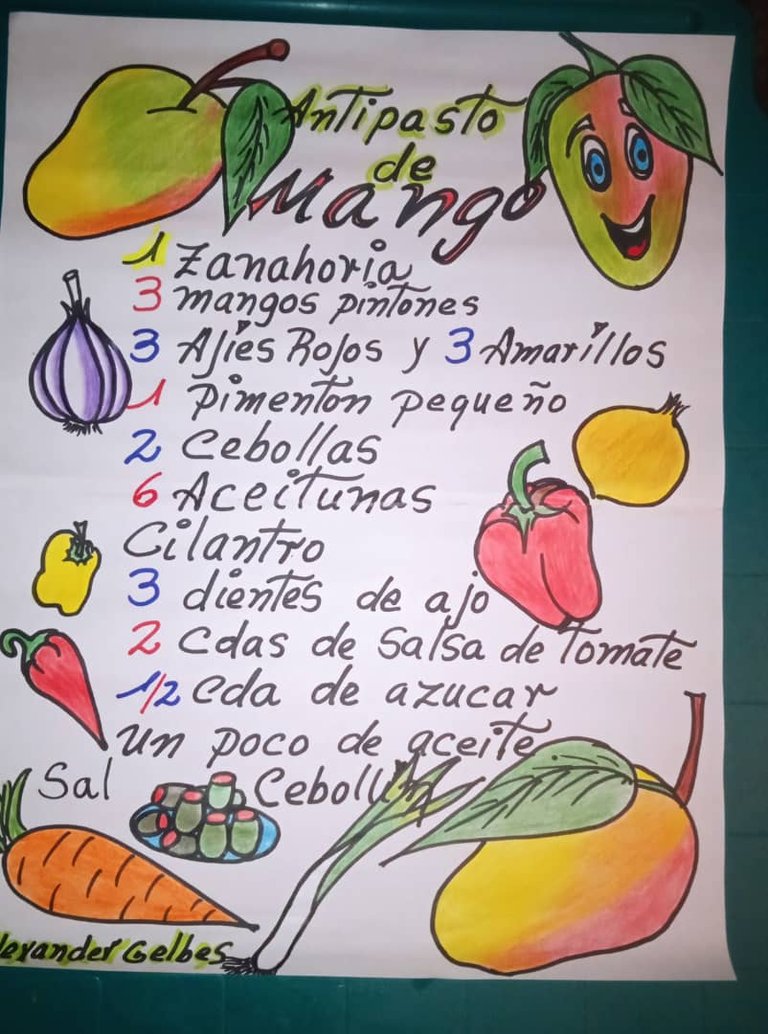 Antipasto
de
Mango
1 Zanahoria
3 mangos pintones
3 Ajíes Rojos y 3 Amarillos
1 Pimentón pequeño
2 Cebollas
6 Aceitunas
Cilantro
3 dientes de ajo
2 Cdas de Salsa de Tomate
1/2 Cda de azucar
un poco de aceite
Sal Cebollín
lexander Gelbes